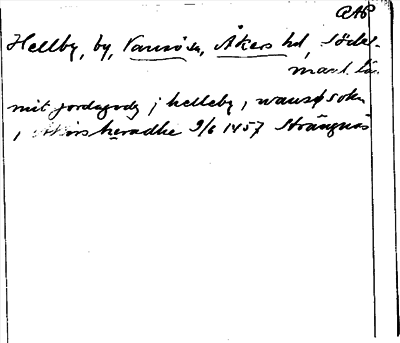 OAP
Hellby, by, Vansö sn, Åkers hd, Söder-
manl. län.
mit jordagodz j helleby, wansø sokn
, Akirs heradhe 9/6 1457 Strängnäs